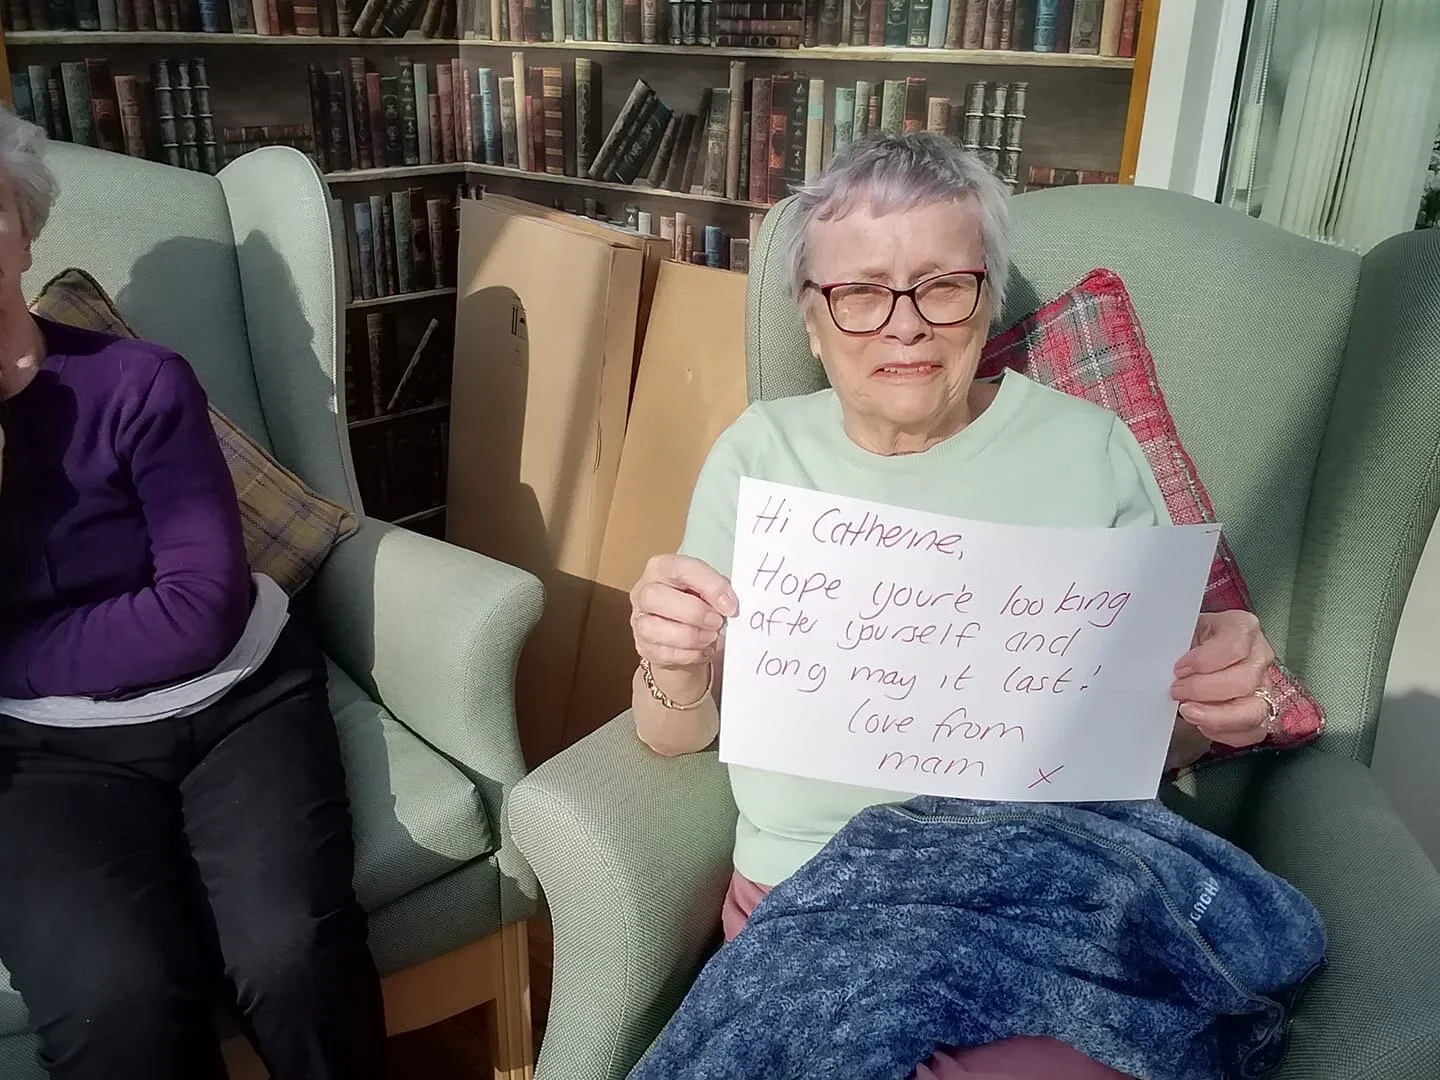 Hi Catherine,
Hope you're looking
after yourself and
long may it last!
love from
mam x